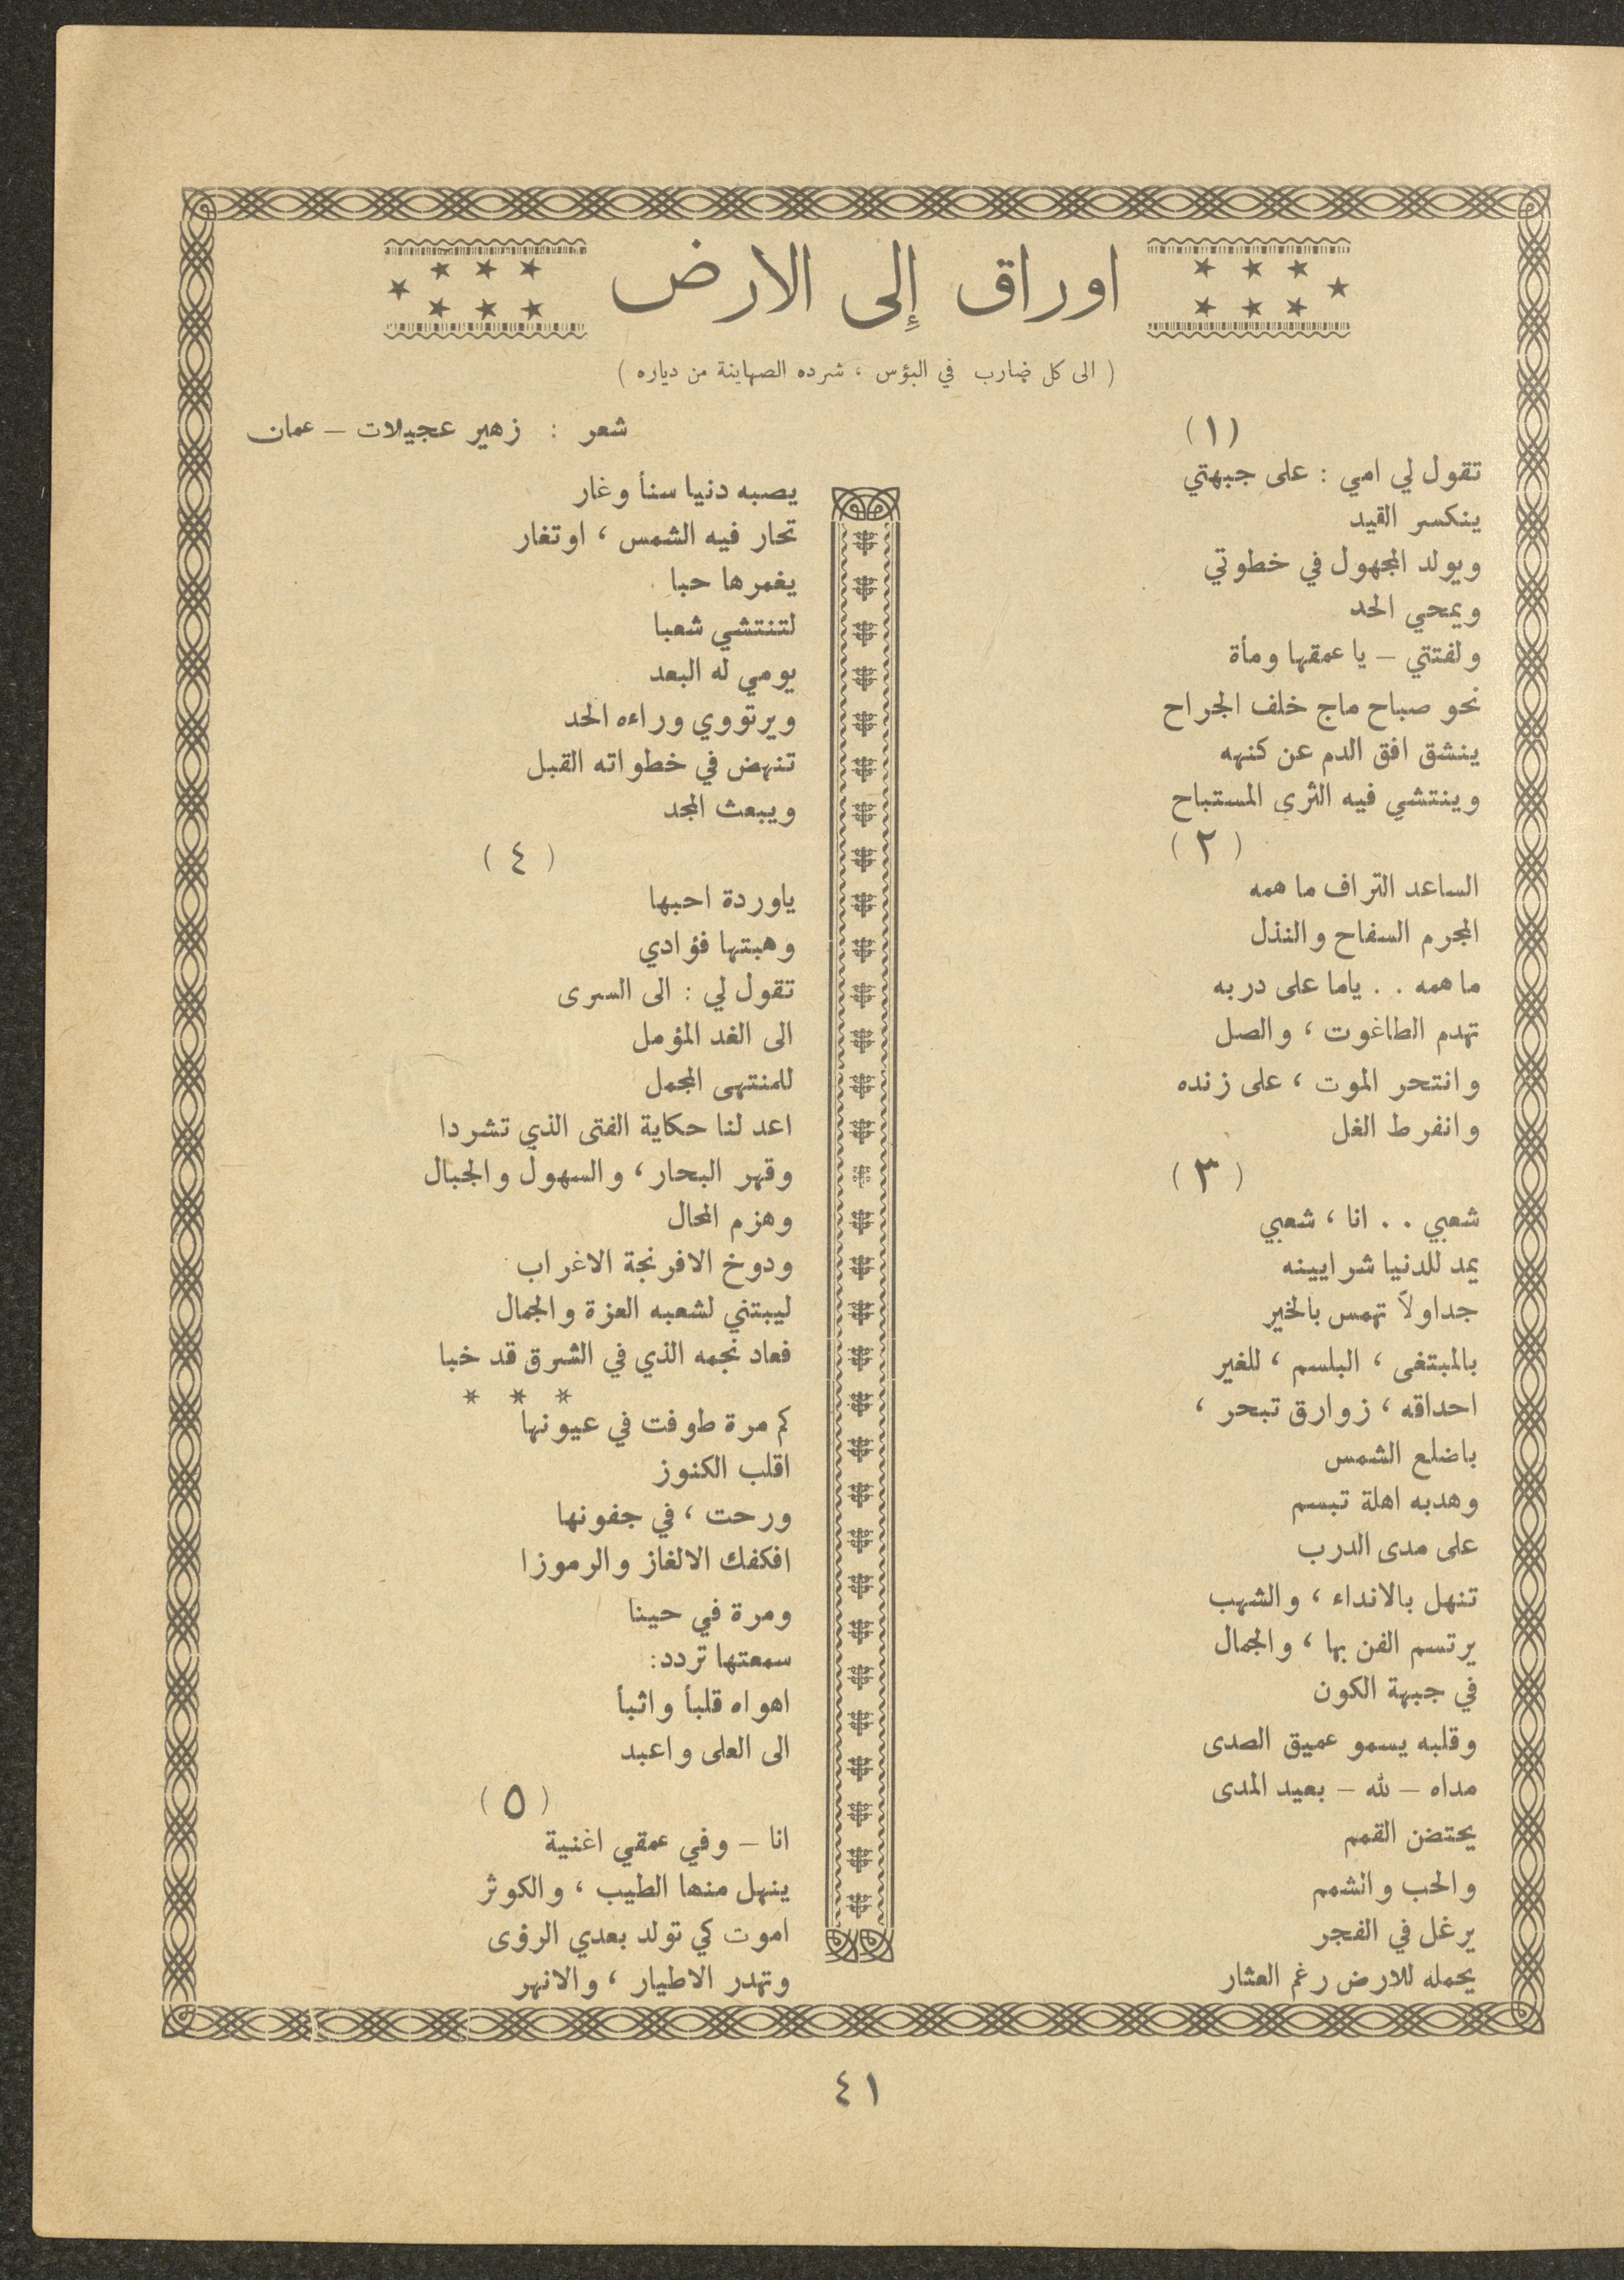 اوراق إلى الارض
( الى كل ضارب في البؤس ، شرده الصهاينة من دياره )
شعر : زهير عجيلات – عمان
(١)
تقول لي امي : على جبهتي
ينكسر القيد
ويولد المجهول في خطوتي
ويمحي الحد
ولفتتي – يا عمقها ومأة
نحو صباح ماج خلف الجراح
ينشق افق الدم عن كنهه
وينتشي فيه الثرى المستباح
( ٢ )
الساعد التراف ما همه
المجرم السفاح والنذل
ما همه . . ياما على دربه
تهدم الطاغوت ، والصل
وانتحر الموت ، على زنده
وانفرط الغل
( ٣ )
شعبي . . انا ، شعبي
يمد للدنيا شرايينه
جداولاً تهمس بالخير
بالمبتغى ، البلسم ، للغير
احداقه ، زوارق تبحر ،
باضلع الشمس
وهدبه اهلة تبسم
على مدى الدرب
تنهل بالانداء ، والشهب
يرتسم الفن بها ، والجمال
في جبهة الكون
وقلبه يسمو عميق الصدى
مداه – لله – بعيد المدى
يحتضن القمم
والحب والشمم
يرغل في الفجر
يحمله للارض رغم العثار
يصبه دنيا سنأ وغار
تحار فيه الشمس ، اوتغار
يغمرها حبا
لتنتشي شعبا
يومي له البعد
ويرتووي وراءه الحد
تنهض في خطواته القبل
ويبعث المجد
( ٤ )
ياوردة احبها
وهبتها فؤادي
تقول لي : الى السرى
الى الغد المؤمل
للمنتهى المجمل
اعد لنا حكاية الفتى الذي تشردا
وقهر البحار ، والسهول والجبال
وهزم المحال
ودوخ الافرنجة الاغراب
ليبتني لشعبه العزة والجمال
فعاد نجمه الذي في الشرق قد خبا
* * *
كم مرة طوفت في عيونها
اقلب الكنوز
ورحت ، في جفونها
افكفك الالغاز والرموزا
ومرة في حينا
سمعتها تردد:
اهواه قلبأ واثبأ
الى العلى واعبد
( ٥ )
انا – وفي عمقي اغنية
ينهل منها الطيب ، والكوثر
اموت كي تولد بعدي الرؤى
وتهدر الاطيار ، والانهر
٤١